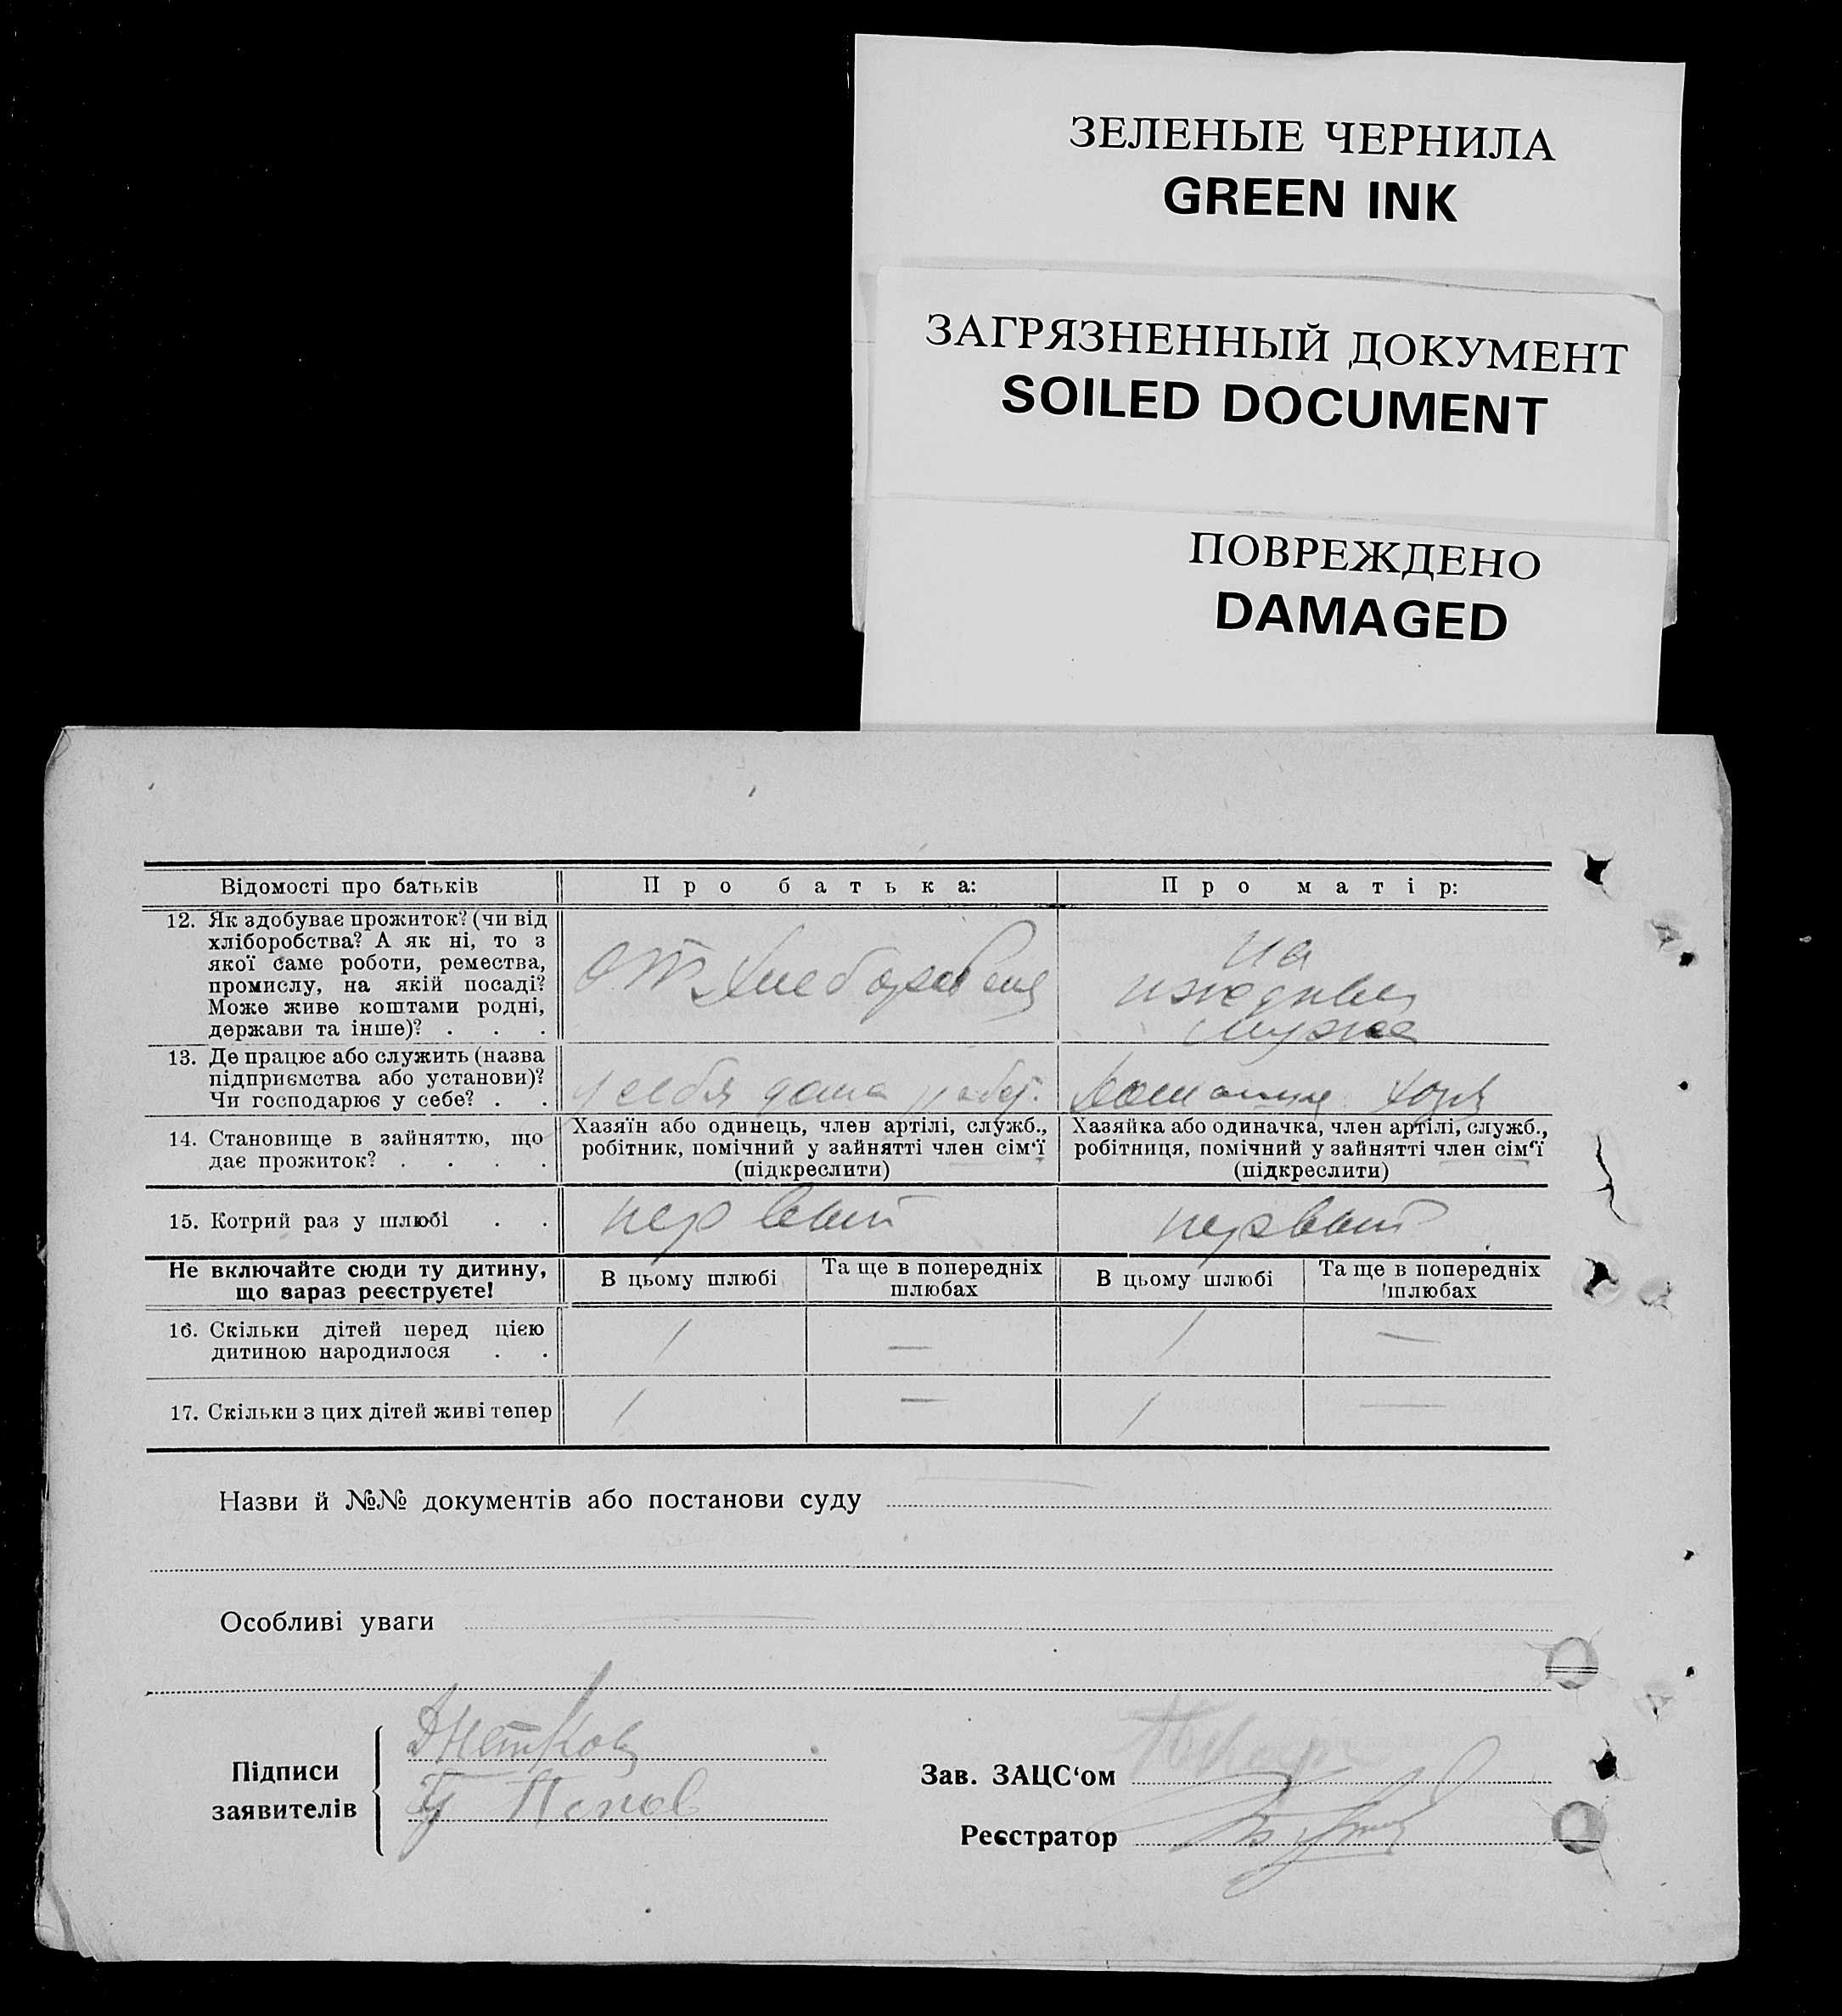 ЗЕЛЕНЫЕ ЧЕРНИЛА
GREEN INK
ЗАГРЯЗНЕННЫЙ ДОКУМЕНТ
SOILED DOCUMENT
ПОВРЕЖДЕНО
DAMAGED
Відомості про батьків
Про батька:
Про матір:
12. Як здобуває прожиток? (чи від
хліборобства? А як ні, то з
якої саме роботи, ремества,
промислу, на якій посаді?
Може живе коштами родні,
держави та інше)? . . .
от
на
мужа
13. Де працює або служить (назва
підприємства або установи)?
Чи господарює у себе? . .
у себя дома
14. Становище в зайняттю, що
дає прожиток? . . . .
Хазяїн або одинець, член артілі, служб.,
робітник, помічний у зайнятті член сім‘ї
(підкреслити)
Хазяйка або одиначка, член артілі, служб.,
робітниця, помічний у зайнятті член сім‘ї
(підкреслити)
15. Котрий раз у шлюбі . .
первый
первый
Не включайте сюди ту дитину,
що зараз реєструєте!
В цьому шлюбі
Та ще в попередніх
шлюбах
В цьому шлюбі
Та ще в попередніх
шлюбах
16. Скільки дітей перед цією
дитиною народилося . .
1
—
1
—
17. Скільки з цих дітей живі тепер
1
—
1
—
Назви й №№ документів або постанови суду
Особливі уваги
Підписи
заявителів
Попов
Зав. ЗАЦС‘ом
Реєстратор